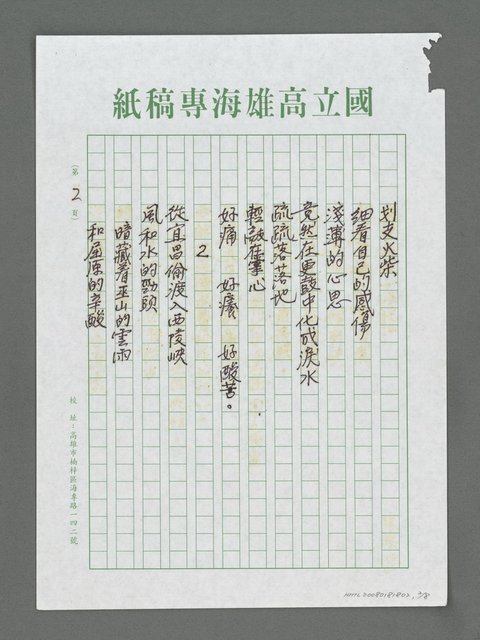 國立高雄海專稿紙
划支火柴
細看自己的感傷
淺薄的心思
竟然在更鼓中化成淚水
疏疏落落地
輕敲在掌心
好痛 好癢 好酸苦。
2
從宜昌偷渡入西陵峽
風和水的勁頭
暗藏着巫山的雲雨
和屈原的辛酸
(第2頁)
校址:高雄市楠梓區海專路一四二號
NMTL20080181802, 3/8